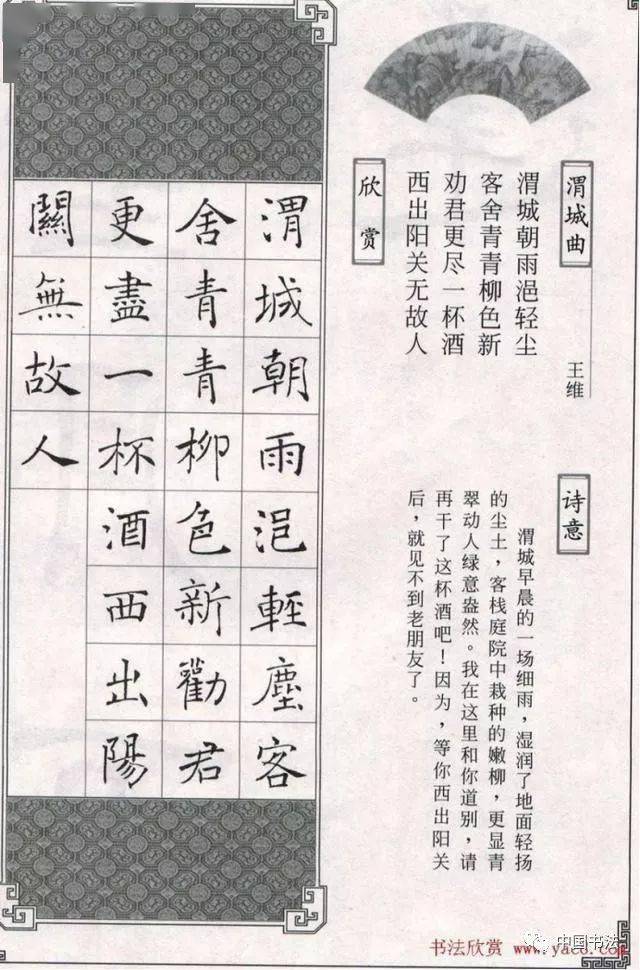 渭城曲
王维
渭城朝雨浥轻尘
客舍青青柳色新
劝君更尽一杯酒
西出阳关无故人
欣赏
诗意
渭城早晨的一场细雨，湿润了地面轻扬
的尘土，客栈庭院中栽种的嫩柳，更显青
翠动人绿意盎然。我在这里和你道别，请
再干了这杯酒吧！因为，等你西出阳关
后，就见不到老朋友了。
渭城朝雨浥輕塵客
舍青青柳色新勸君
更盡一杯酒西出陽
關無故人
中国书法
书法欣赏 www.yac8.com